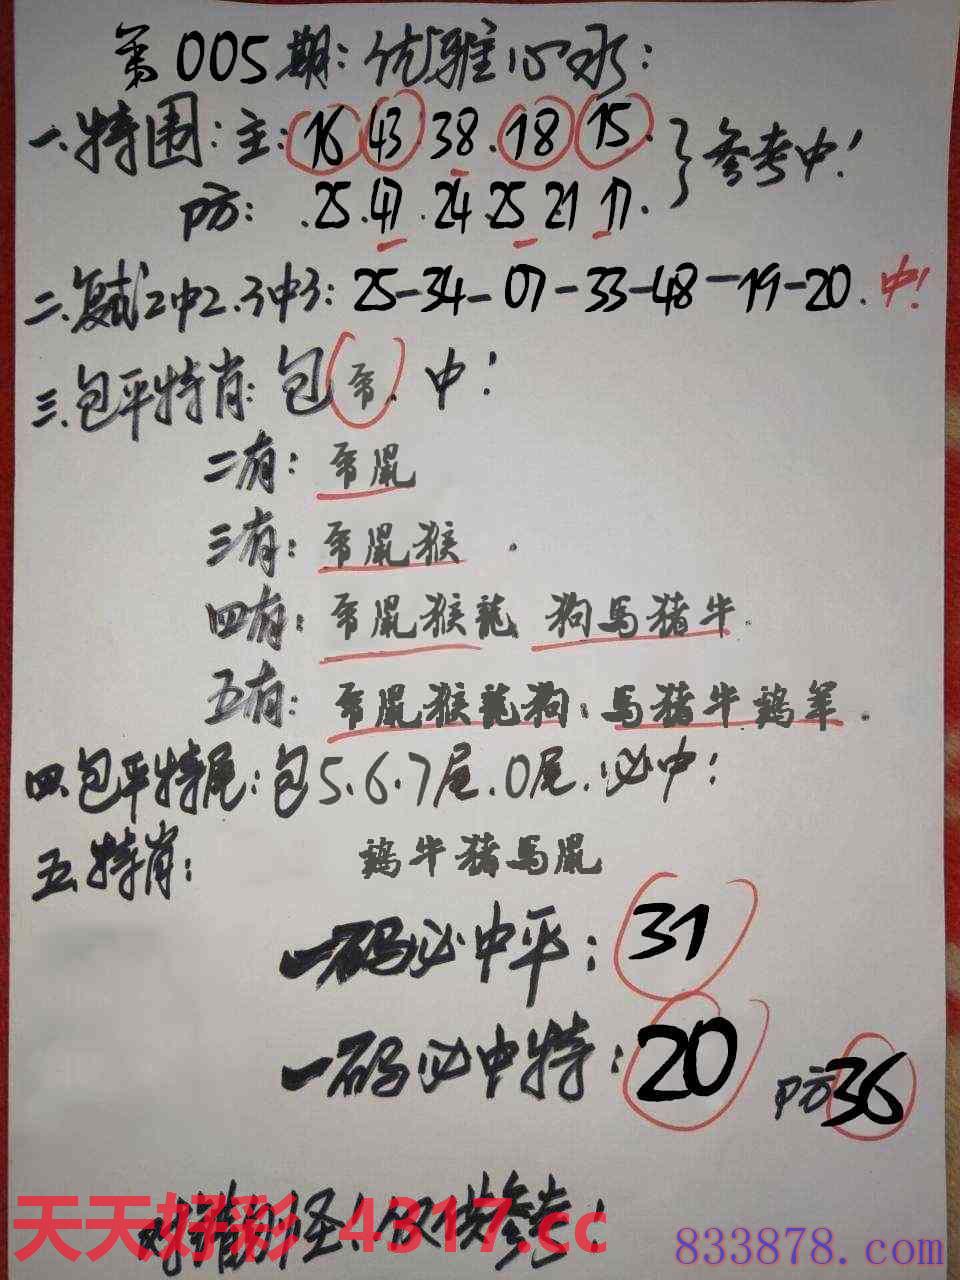 第005期:优雅心水:
一.特围:主:16.43.38.18.15.}参考中!
防:.25.47.24.25 21 17.
二.复式2中2.3中3:25-34-07-33-48-19-20.中!
三.包平特肖:包.中!
二有:鼠
三有:鼠猴
四有:鼠猴龍 狗馬猪牛
五有:鼠猴龍狗.馬猪牛鷄羊.
四.包平特尾:包5.6.7尾.0尾.必中!
五.特肖:鷄牛猪馬鼠
一码必中平:31
一码必中特:20 防36
对错勿怪!仅供参考!
天天好彩 4317.cc
833878.com